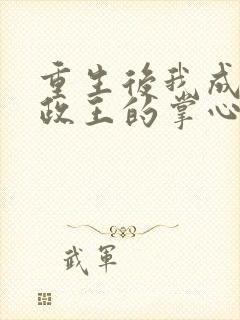 重生後我成
政王的掌心
武軍